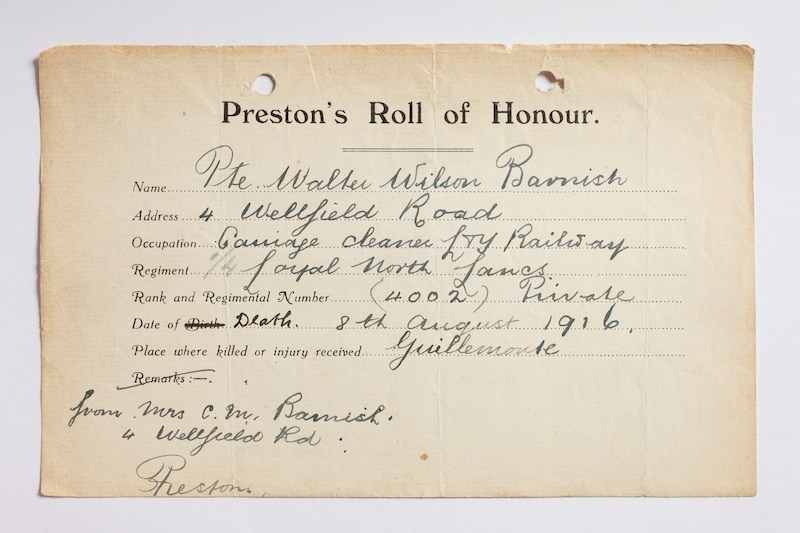 Preston's Roll of Honour.
Name Pte. Walter Wilson Barnish
Address 4 Wellfield Road
Occupation Carriage cleaner L&Y Railway
Regiment 1/4 Loyal North Lancs.
Rank and Regimental Number (4002) Private
Date of Birth Death. 8th August 1916.
Place where killed or injury received Guillemonte
Remarks:—.
from Mrs C. M. Barnish.
4 Wellfield Rd.
Preston.